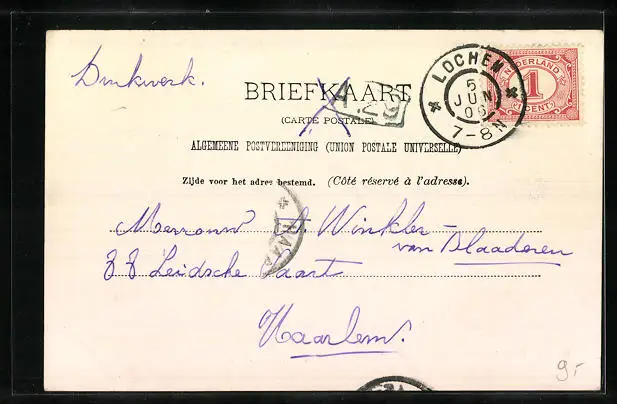 Drukwerk.
BRIEFKAART
(CARTE POSTALE)
ALGEMEENE POSTVEREENIGING (UNION POSTALE UNIVERSELLE)
Zijde voor het adres bestemd. (Côté réservé à l'adresse).
LOCHEM
5
JUN
06
7-8N
NEDERLAND
1
CENT
Mevrouw A. Winkler-
van Blaaderen
88 Leidsche Vaart
Haarlem.
9.-